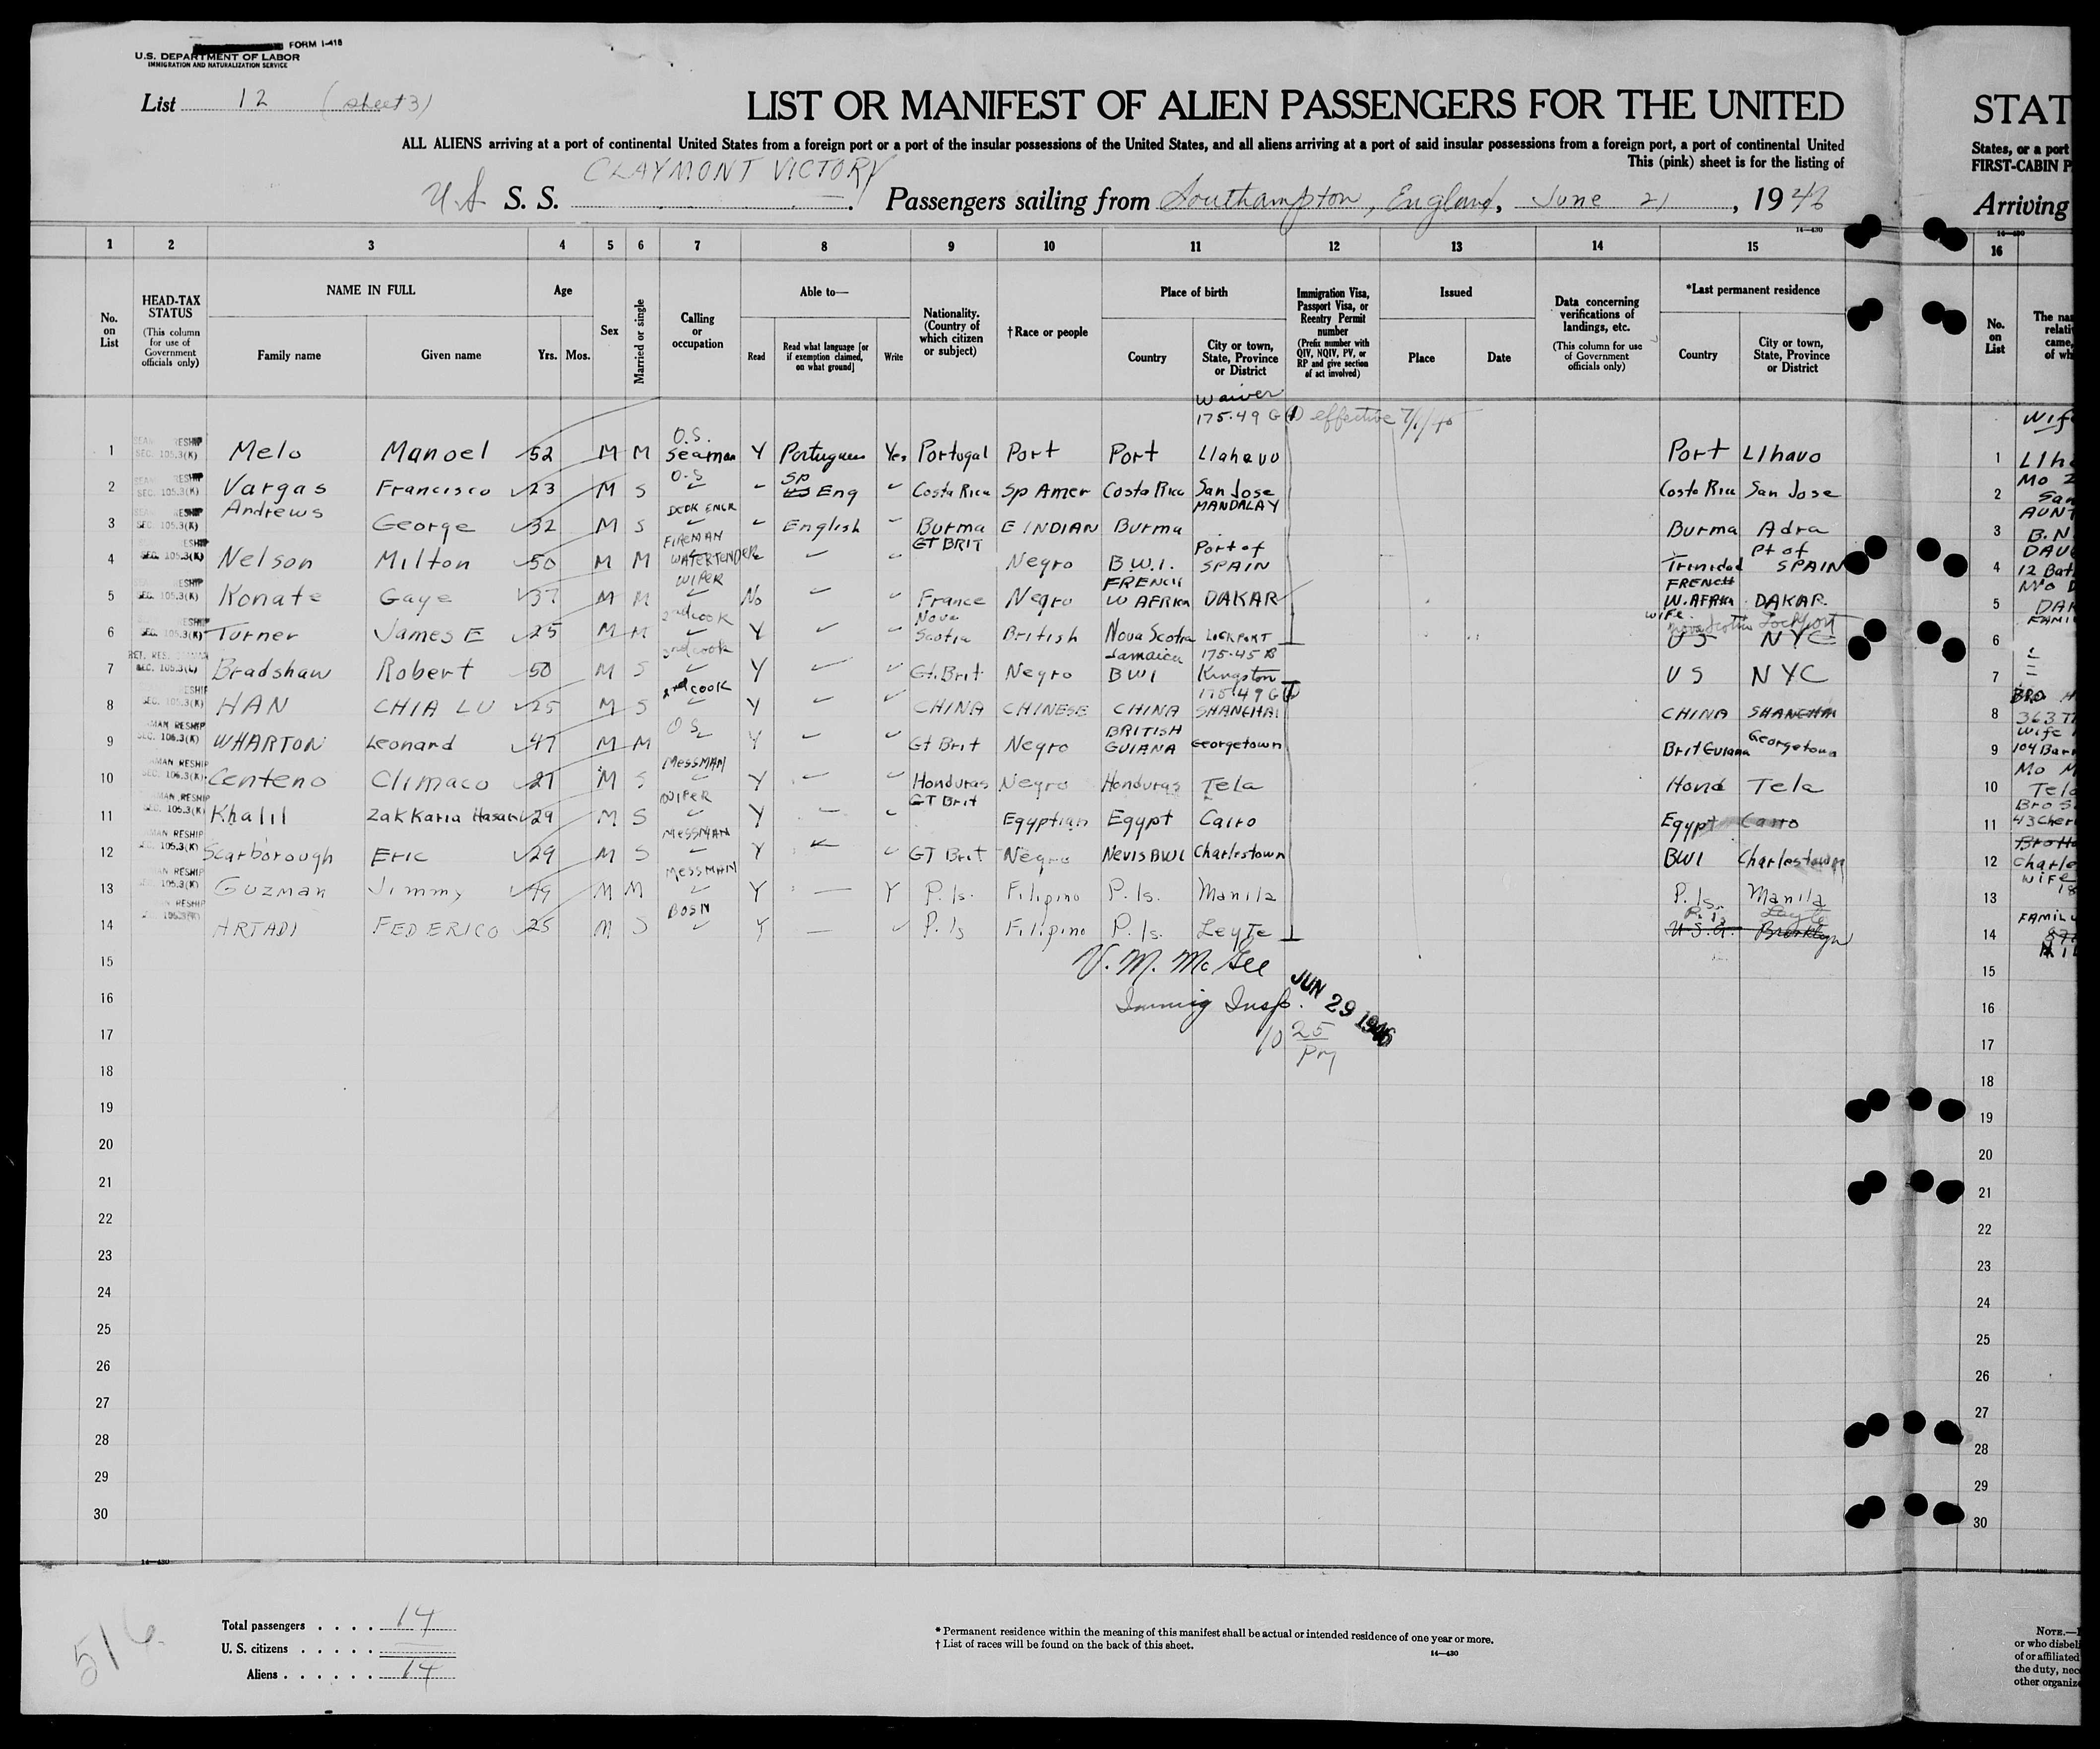 FORM I-418
U.S. DEPARTMENT OF LABOR
IMMIGRATION AND NATURALIZATION SERVICE
List 12 (sheet 3)
LIST OR MANIFEST OF ALIEN PASSENGERS FOR THE UNITED
STAT
ALL ALIENS arriving at a port of continental United States from a foreign port or a port of the insular possessions of the United States, and all aliens arriving at a port of said insular possessions from a foreign port, a port of continental United
States, or a port
This (pink) sheet is for the listing of
FIRST-CABIN P
CLAYMONT VICTORY
US S. S. Passengers sailing from Southampton, England, June 21, 1946
Arriving
14—430
1 2 3 4 5 6 7 8 9 10 11 12 13 14 15 16
No. on List
HEAD-TAX STATUS
(This column for use of Government officials only)
NAME IN FULL
Family name Given name
Age
Yrs. Mos.
Sex
Married or single
Calling or occupation
Able to—
Read
Read what language [or if exemption claimed, on what ground]
Write
Nationality. (Country of which citizen or subject)
†Race or people
Place of birth
Country
City or town, State, Province or District
Immigration Visa, Passport Visa, or Reentry Permit number
(Prefix number with QIV, NQIV, PV, or RP and give section of act involved)
Issued
Place Date
Data concerning verifications of landings, etc.
(This column for use of Government officials only)
*Last permanent residence
Country
City or town, State, Province or District
No. on List
waiver
175.49 G(1) effective 7/1/40
1 SEC. 105.3(K) Melo Manoel 52 M M O.S. Seaman Y Portuguese Yes Portugal Port Port Llahavo Port Llhavo 1
2 SEC. 105.3(K) Vargas Francisco 23 M S O.S Sp Eng Costa Rica Sp Amer Costa Rica San Jose Costa Rica San Jose 2
3 SEC. 105.3(K) Andrews George 32 M S DECK ENGR English Burma E INDIAN Burma MANDALAY Burma Adra 3
4 SEC. 105.3(K) Nelson Milton 50 M M FIREMAN WATERTENDER GT BRIT Negro B.W.I. Port of SPAIN Trinidad Pt of SPAIN 4
5 SEC. 105.3(K) Konate Gaye 37 M M WIPER No France Negro FRENCH W AFRICA DAKAR FRENCH W. AFRICA DAKAR. 5
6 SEC. 105.3(K) Turner James E 25 M M 2nd cook Y Nova Scotia British Nova Scotia LOCKPORT wife Nova Scotia Lockport US NYC 6
7 SEC. 105.3(L) Bradshaw Robert 50 M S 2nd cook Y Gt. Brit Negro Jamaica BWI 175.45 B Kingston US NYC 7
8 SEC. 105.3(K) HAN CHIA LU 25 M S 2nd cook Y CHINA CHINESE CHINA 175.49 G(1) SHANGHAI CHINA SHANGHAI 8
9 SEC. 105.3(K) WHARTON Leonard 47 M M OS Y Gt Brit Negro BRITISH GUIANA Georgetown Brit Guiana Georgetown 9
10 SEC. 105.3(K) Centeno Climaco 27 M S MESSMAN Y Honduras Negro Honduras Tela Hond Tela 10
11 SEC. 105.3(K) Khalil Zakkaria Hasan 29 M S WIPER Y GT Brit Egyptian Egypt Cairo Egypt Cairo 11
12 105.3(K) Scarborough Eric 29 M S MESSMAN Y GT Brit Negro Nevis BWI Charlestown BWI Charlestown 12
13 105.3(K) Guzman Jimmy 49 M M MESSMAN Y Y P. Is. Filipino P. Is. Manila P. Is. Manila 13
14 ARTADI FEDERICO 25 M S BOSN Y P. Is Filipino P. Is. Leyte P. Is Leyte U.S.A. Brooklyn 14
15 V. M. McGee 15
16 Immig Insp. JUN 29 1946 16
17 10 25 PM 17
18 18
19 19
20 20
21 21
22 22
23 23
24 24
25 25
26 26
27 27
28 28
29 29
30 30
14—430
516
Total passengers . . . . 14
U. S. citizens . . . . .
Aliens . . . . . . 14
* Permanent residence within the meaning of this manifest shall be actual or intended residence of one year or more.
† List of races will be found on the back of this sheet.
14—430
NOTE.—
or who disbeli
of or affiliated
the duty, nec
other organiz